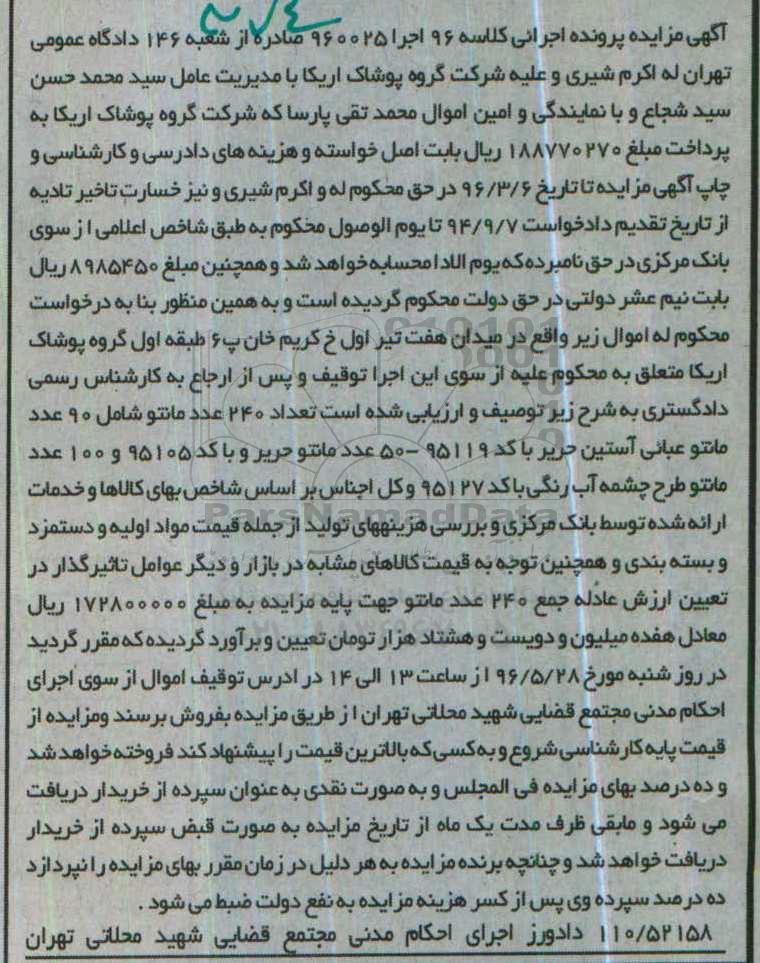 آگهی مزایده پرونده اجرائی کلاسه ۹۶ اجرا ۹۶۰۰۲۵ صادره از شعبه ۱۴۶ دادگاه عمومی
تهران له اکرم شیری و علیه شرکت گروه پوشاک اریکا با مدیریت عامل سید محمد حسن
سید شجاع و با نمایندگی و امین اموال محمد تقی پارسا که شرکت گروه پوشاک اریکا به
پرداخت مبلغ ۱۸۸۷۷۰۲۷۰ ریال بابت اصل خواسته و هزینه های دادرسی و کارشناسی و
چاپ آگهی مزایده تا تاریخ ۹۶/۳/۶ در حق محکوم له و اکرم شیری و نیز خسارت تاخیر تادیه
از تاریخ تقدیم دادخواست ۹۴/۹/۷ تا یوم الوصول محکوم به طبق شاخص اعلامی ا ز سوی
بانک مرکزی در حق نامبرده که یوم الادا محسابه خواهد شد و همچنین مبلغ ۸۹۸۵۴۵۰ ریال
بابت نیم عشر دولتی در حق دولت محکوم گردیده است و به همین منظور بنا به درخواست
محکوم له اموال زیر واقع در میدان هفت تیر اول خ کریم خان پ۶ طبقه اول گروه پوشاک
اریکا متعلق به محکوم علیه از سوی این اجرا توقیف و پس از ارجاع به کارشناس رسمی
دادگستری به شرح زیر توصیف و ارزیابی شده است تعداد ۲۴۰ عدد مانتو شامل ۹۰ عدد
مانتو عبائی آستین حریر با کد ۹۵۱۱۹ -۵۰ عدد مانتو حریر و با کد ۹۵۱۰۵ و ۱۰۰ عدد
مانتو طرح چشمه آب رنگی با کد ۹۵۱۲۷ و کل اجناس بر اساس شاخص بهای کالاها و خدمات
ارائه شده توسط بانک مرکزی و بررسی هزینههای تولید از جمله قیمت مواد اولیه و دستمزد
و بسته بندی و همچنین توجه به قیمت کالاهای مشابه در بازار و دیگر عوامل تاثیرگذار در
تعیین ارزش عادله جمع ۲۴۰ عدد مانتو جهت پایه مزایده به مبلغ ۱۷۲۸۰۰۰۰۰ ریال
معادل هفده میلیون و دویست و هشتاد هزار تومان تعیین و برآورد گردیده که مقرر گردید
در روز شنبه مورخ ۹۶/۵/۲۸ ا ز ساعت ۱۳ الی ۱۴ در ادرس توقیف اموال از سوی اجرای
احکام مدنی مجتمع قضایی شهید محلاتی تهران ا ز طریق مزایده بفروش برسند ومزایده از
قیمت پایه کارشناسی شروع و به کسی که بالاترین قیمت را پیشنهاد کند فروخته خواهد شد
و ده درصد بهای مزایده فی المجلس و به صورت نقدی به عنوان سپرده از خریدار دریافت
می شود و مابقی ظرف مدت یک ماه از تاریخ مزایده به صورت قبض سپرده از خریدار
دریافت خواهد شد و چنانچه برنده مزایده به هر دلیل در زمان مقرر بهای مزایده را نپردازد
ده درصد سپرده وی پس از کسر هزینه مزایده به نفع دولت ضبط می شود .
۱۱۰/۵۲۱۵۸ دادورز اجرای احکام مدنی مجتمع قضایی شهید محلاتی تهران
ParsNamadData